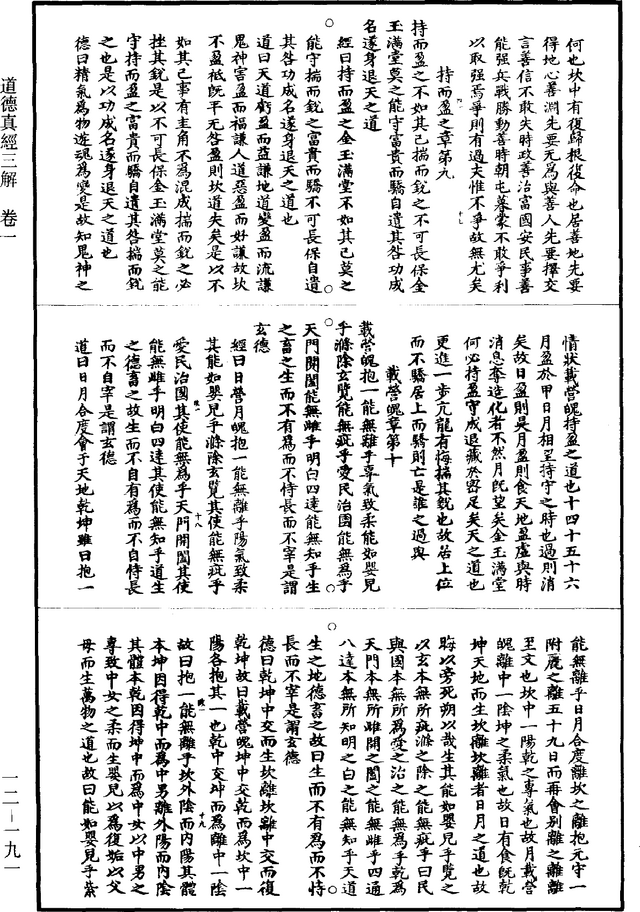 道德真經三解　卷一
一二—一九一
何也坎中有復歸根復命也居善地先要
得地心善淵先要元為與善人先要擇交
言善信不敢失時政善治富國安民事善
能强兵戰勝動善時朝屯暮蒙不敢爭利
以取强焉爭則有過夫惟不爭故無尤矣
十七
持而盈之章第九
持而盈之不如其已揣而銳之不可長保金
玉滿堂莫之能守富貴而驕自遺其咎功成
名遂身退天之道
經曰持而盈之金玉滿堂不如其已莫之
能守揣而銳之富貴而驕不可長保自遺
其咎功成名遂身退天之道也
道曰天道虧盈而益謙地道變盈而流謙
鬼神害盈而福謙人道惡盈而好謙故坎
不盈祗既平无咎盈則坎道失矣是以不
如其已事有圭角不為混成揣而銳之必
挫其銳是以不可長保金玉滿堂莫之能
守持而盈之富貴而驕自遺其咎揣而銳
之也是以功成名遂身退天之道也
德曰精氣為物遊魂為變是故知鬼神之
情狀載營魄持盈之道也十四十五十六
月盈於甲日月相望持守之時也過則消
矣故日盈則昃月盈則食天地盈虛與時
消息奪造化者不然月既望矣金玉滿堂
何必持盈守成退藏於密足矣天之道也
更進一步亢龍有悔揣其銳也故居上位
而不驕居上而驕則亡是誰之過與
載營魄章第十
載營魄抱一能無離乎專氣致柔能如嬰兒
乎滌除玄覽能無疵乎愛民治國能無為乎
天門開闔能無雌乎明白四達能無知乎生
之畜之生而不有為而不恃長而不宰是謂
玄德
經曰日營月魄抱一能無離乎陽氣致柔
其能如嬰兒乎滌除玄覽其使能無疵乎
愛民治國其使能無為乎天門開闔其使
十八
能無雌乎明白四達其使能無知乎道生
之德畜之故生而不自有為而不自恃長
而不自宰是謂玄德
道曰日月合度會于天地乾坤雖曰抱一
能無離乎日月合度離坎之離抱元守一
附麗之離五十九日而再會別離之離離
至文也坎中一陽乾之專氣也故月載營
魄離中一陰坤之柔氣也故日有食既乾
坤天地而生坎離坎離者日月之道也故
晦以旁死朔以哉生其能如嬰兒乎覽之
以玄本無所疵滌之除之能無疵乎曰民
與國本無所為愛之治之能無為乎乾為
天門本無所雌開之闔之能無雌乎四通
八達本無所知明之白之能無知乎天道
生之地德畜之故曰生而不有為而不恃
長而不宰是謂玄德
德曰乾坤中交而生坎離坎離中交而復
乾坤故曰載營魄坤中交乾而為坎中一
陽各抱其一也乾中交坤而為離中一陰
故曰抱一能無離乎坎外陰而內陽其體
十九
本坤因得乾中而為中男離外陽而內陰
其體本乾因得坤中而為中女以中男之
專致中女之柔而生嬰兒以為復姤以父
母而生萬物之道也故曰能如嬰兒乎紫